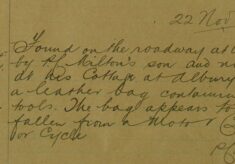 22 Nov
Found on the roadway at
by P.C. Milton's son and
at his Cottage at Albury
a leather bag containing
tools. The bag appears to
fallen from a Motor
for Cycle